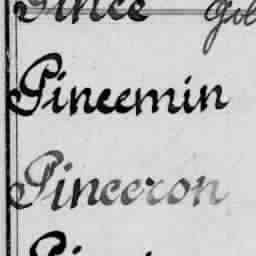 Pince
Pincemin
Pinceron